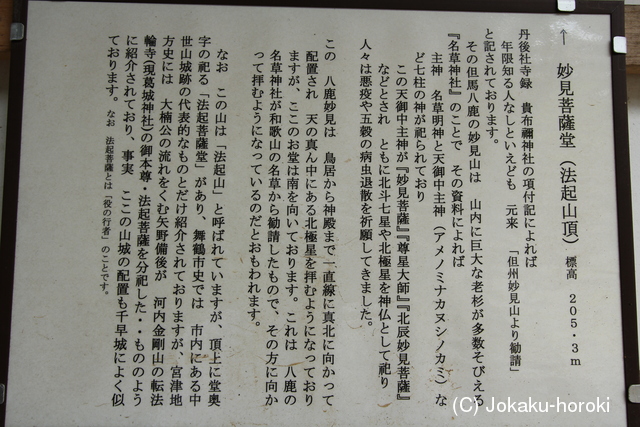 ↑ 妙見菩薩堂(法起山頂) 標高 205・3m
丹後社寺録 貴布禰神社の項付記によれば
年限知る人なしといえども 元来 「但州妙見山より勧請」
と記されております。
その但馬八鹿の妙見山は 山内に巨大な老杉が多数そびえる
『名草神社』のことで その資料によれば
主神 名草明神と天御中主神(アメノミナカヌシノカミ)な
ど七柱の神が祀られており
この天御中主神が『妙見菩薩』『尊星大師』『北辰妙見菩薩』
などとされ ともに北斗七星や北極星を神仏として祀り
人々は悪疫や五穀の病虫退散を祈願してきました。
この 八鹿妙見は 鳥居から神殿まで一直線に真北に向かって
配置され 天の真ん中にある北極星を拝むようになっており
ますが、ここのお堂は南を向いております。これは 八鹿の
名草神社が和歌山の名草から勧請したもので、その方に向か
って拝むようになっているのだとおもわれます。
なお この山は「法起山」と呼ばれていますが、頂上に堂奥
字の祀る「法起菩薩堂」があり、舞鶴市史では 市内にある中
世山城跡の代表的なものとだけ紹介されておりますが、宮津地
方史には 大楠公の流れをくむ矢野備後が 河内金剛山の転法
輪寺(現葛城神社)の御本尊・法起菩薩を分祀した・・もののよう
に紹介されており、事実 ここの山城の配置も千早城によく似
ております。 なお 法起菩薩とは「役の行者」のことです。
(C) Jokaku-horoki